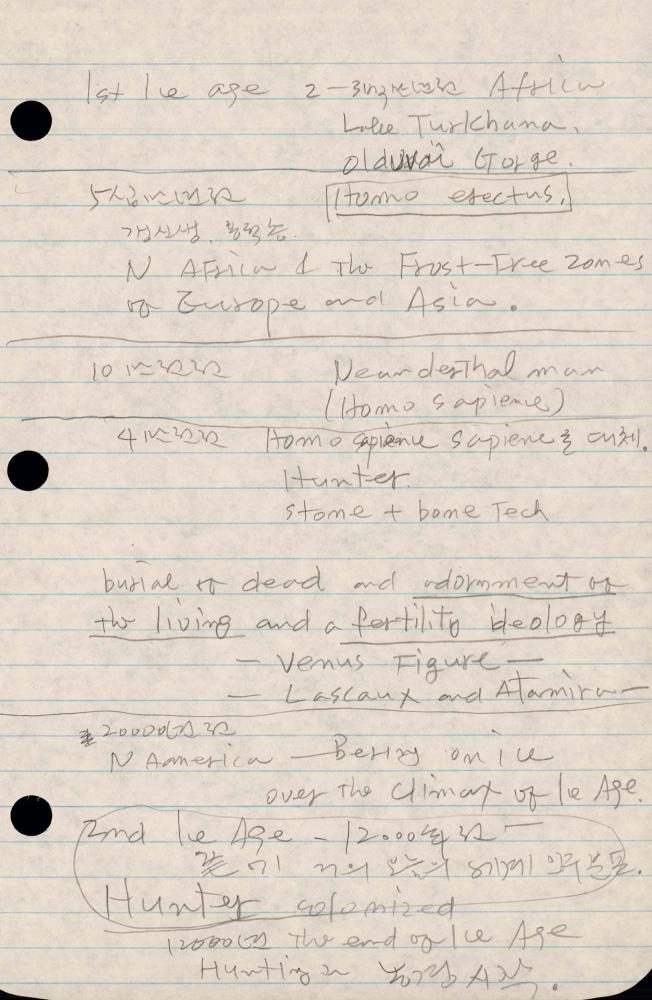 1st Ice age 2-3백만년전 Africa
Lake Turkhana,
olduvai Gorge.
5십만년전 Homo erectus,
갱신세,
N Africa & the Frost-Free zones
of Europe and Asia.
10만년전 Neanderthal man
(Homo sapiene)
4만년전 Homo sapiene sapiene를 대체.
Hunter.
stone + bone Tech
burial of dead and adornment of
the living and a fertility ideology
- Venus Figure -
- Lascaux and Atamira -
20000년전
N Aamerica - Bering on ice
over the climax of Ice Age.
2nd Ice Age - 12000년전 -
거의 오늘의 세계
Hunter colonized
12000년 the end of Ice Age
Hunting 시작.